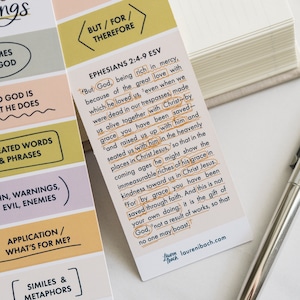 ngs
BUT / FOR /
THEREFORE
EPHESIANS 2:4-9 ESV
"But God, being rich in mercy,
because of the great love with
which he loved us, ⁵even when we
were dead in our trespasses, made
us alive together with Christ—by
grace you have been saved—
⁶and raised us up with him and
seated us with him in the heavenly
places in Christ Jesus, ⁷so that in the
coming ages he might show the
immeasurable riches of his grace in
kindness toward us in Christ Jesus.
⁸For by grace you have been
saved through faith. And this is not
your own doing; it is the gift of
God, ⁹not a result of works, so that
no one may boast."
lauren
ibach
laurenibach.com
MES
GOD
O GOD IS
T HE DOES
EATED WORDS
& PHRASES
IN, WARNINGS,
EVIL, ENEMIES
APPLICATION /
WHAT'S FOR ME?
SIMILES &
METAPHORS